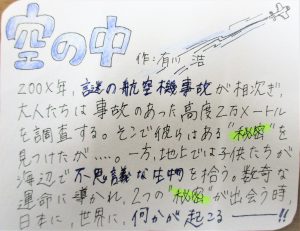 空の中
作:有川 浩
200X年,謎の航空機事故が相次ぎ,
大人たちは事故のあった高度2万メートル
を調査する。そこで彼らはある"秘密"を
見つけたが....。一方,地上では子供たちが
海辺で不思議な生物を拾う。数奇な
運命に導かれ,2つの"秘密"が出会う時,
日本に,世界に,何かが起こる――!!